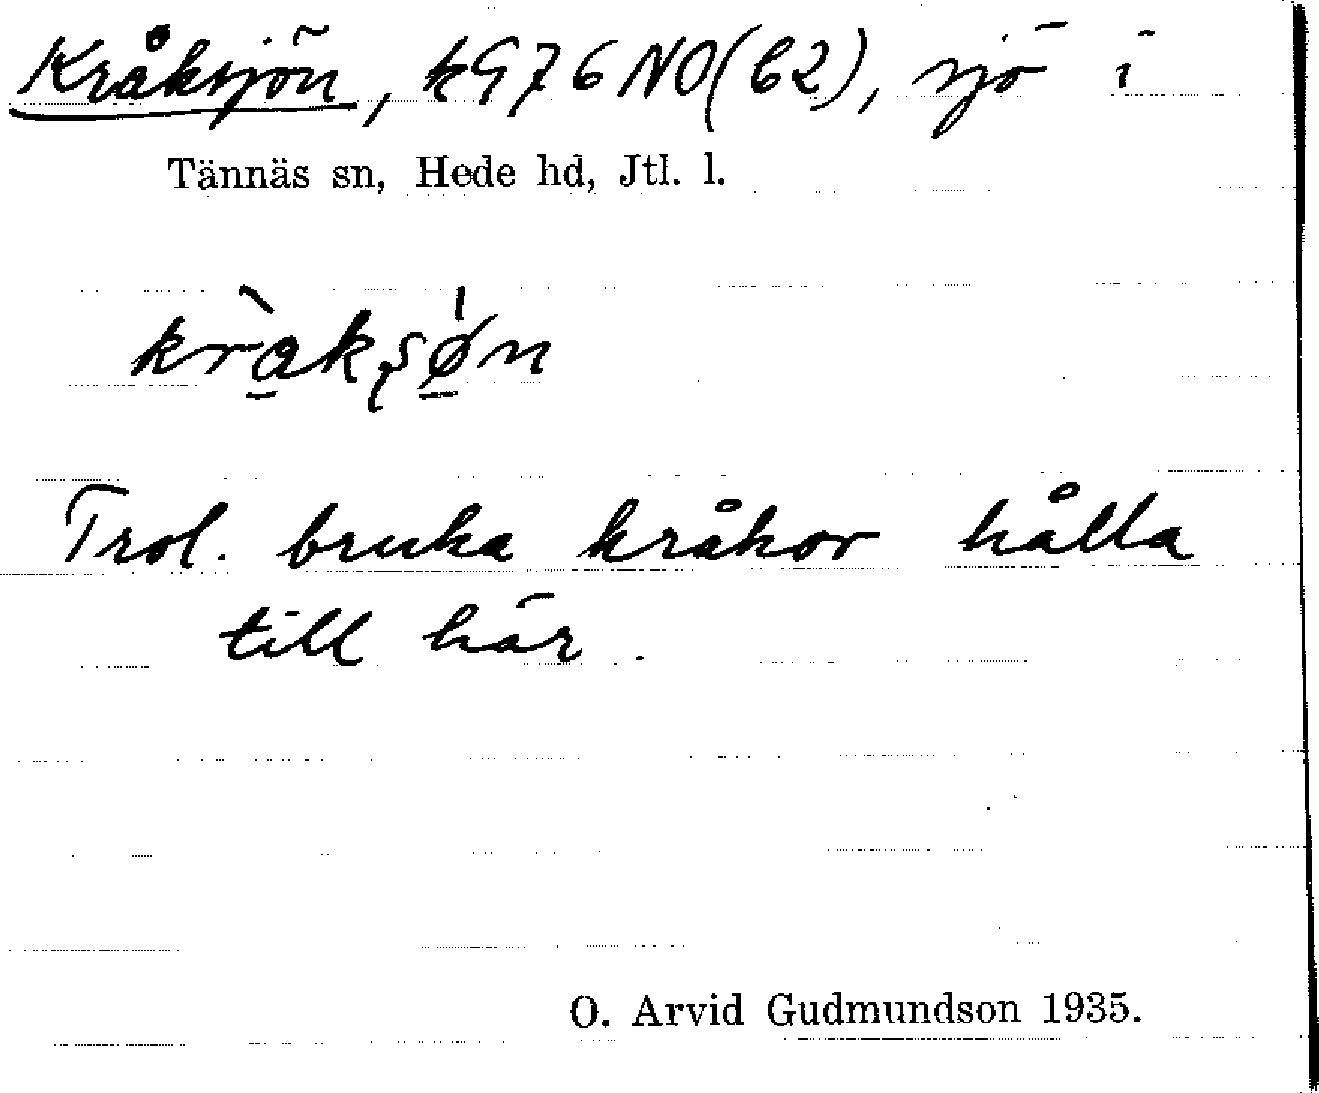 Kråksjön, kG76NO(b2), sjö i
Tännäs sn, Hede hd, Jtl. l.
kràkʂø̍n
Trol. bruka kråkor hålla
till här.
O. Arvid Gudmundson 1935.